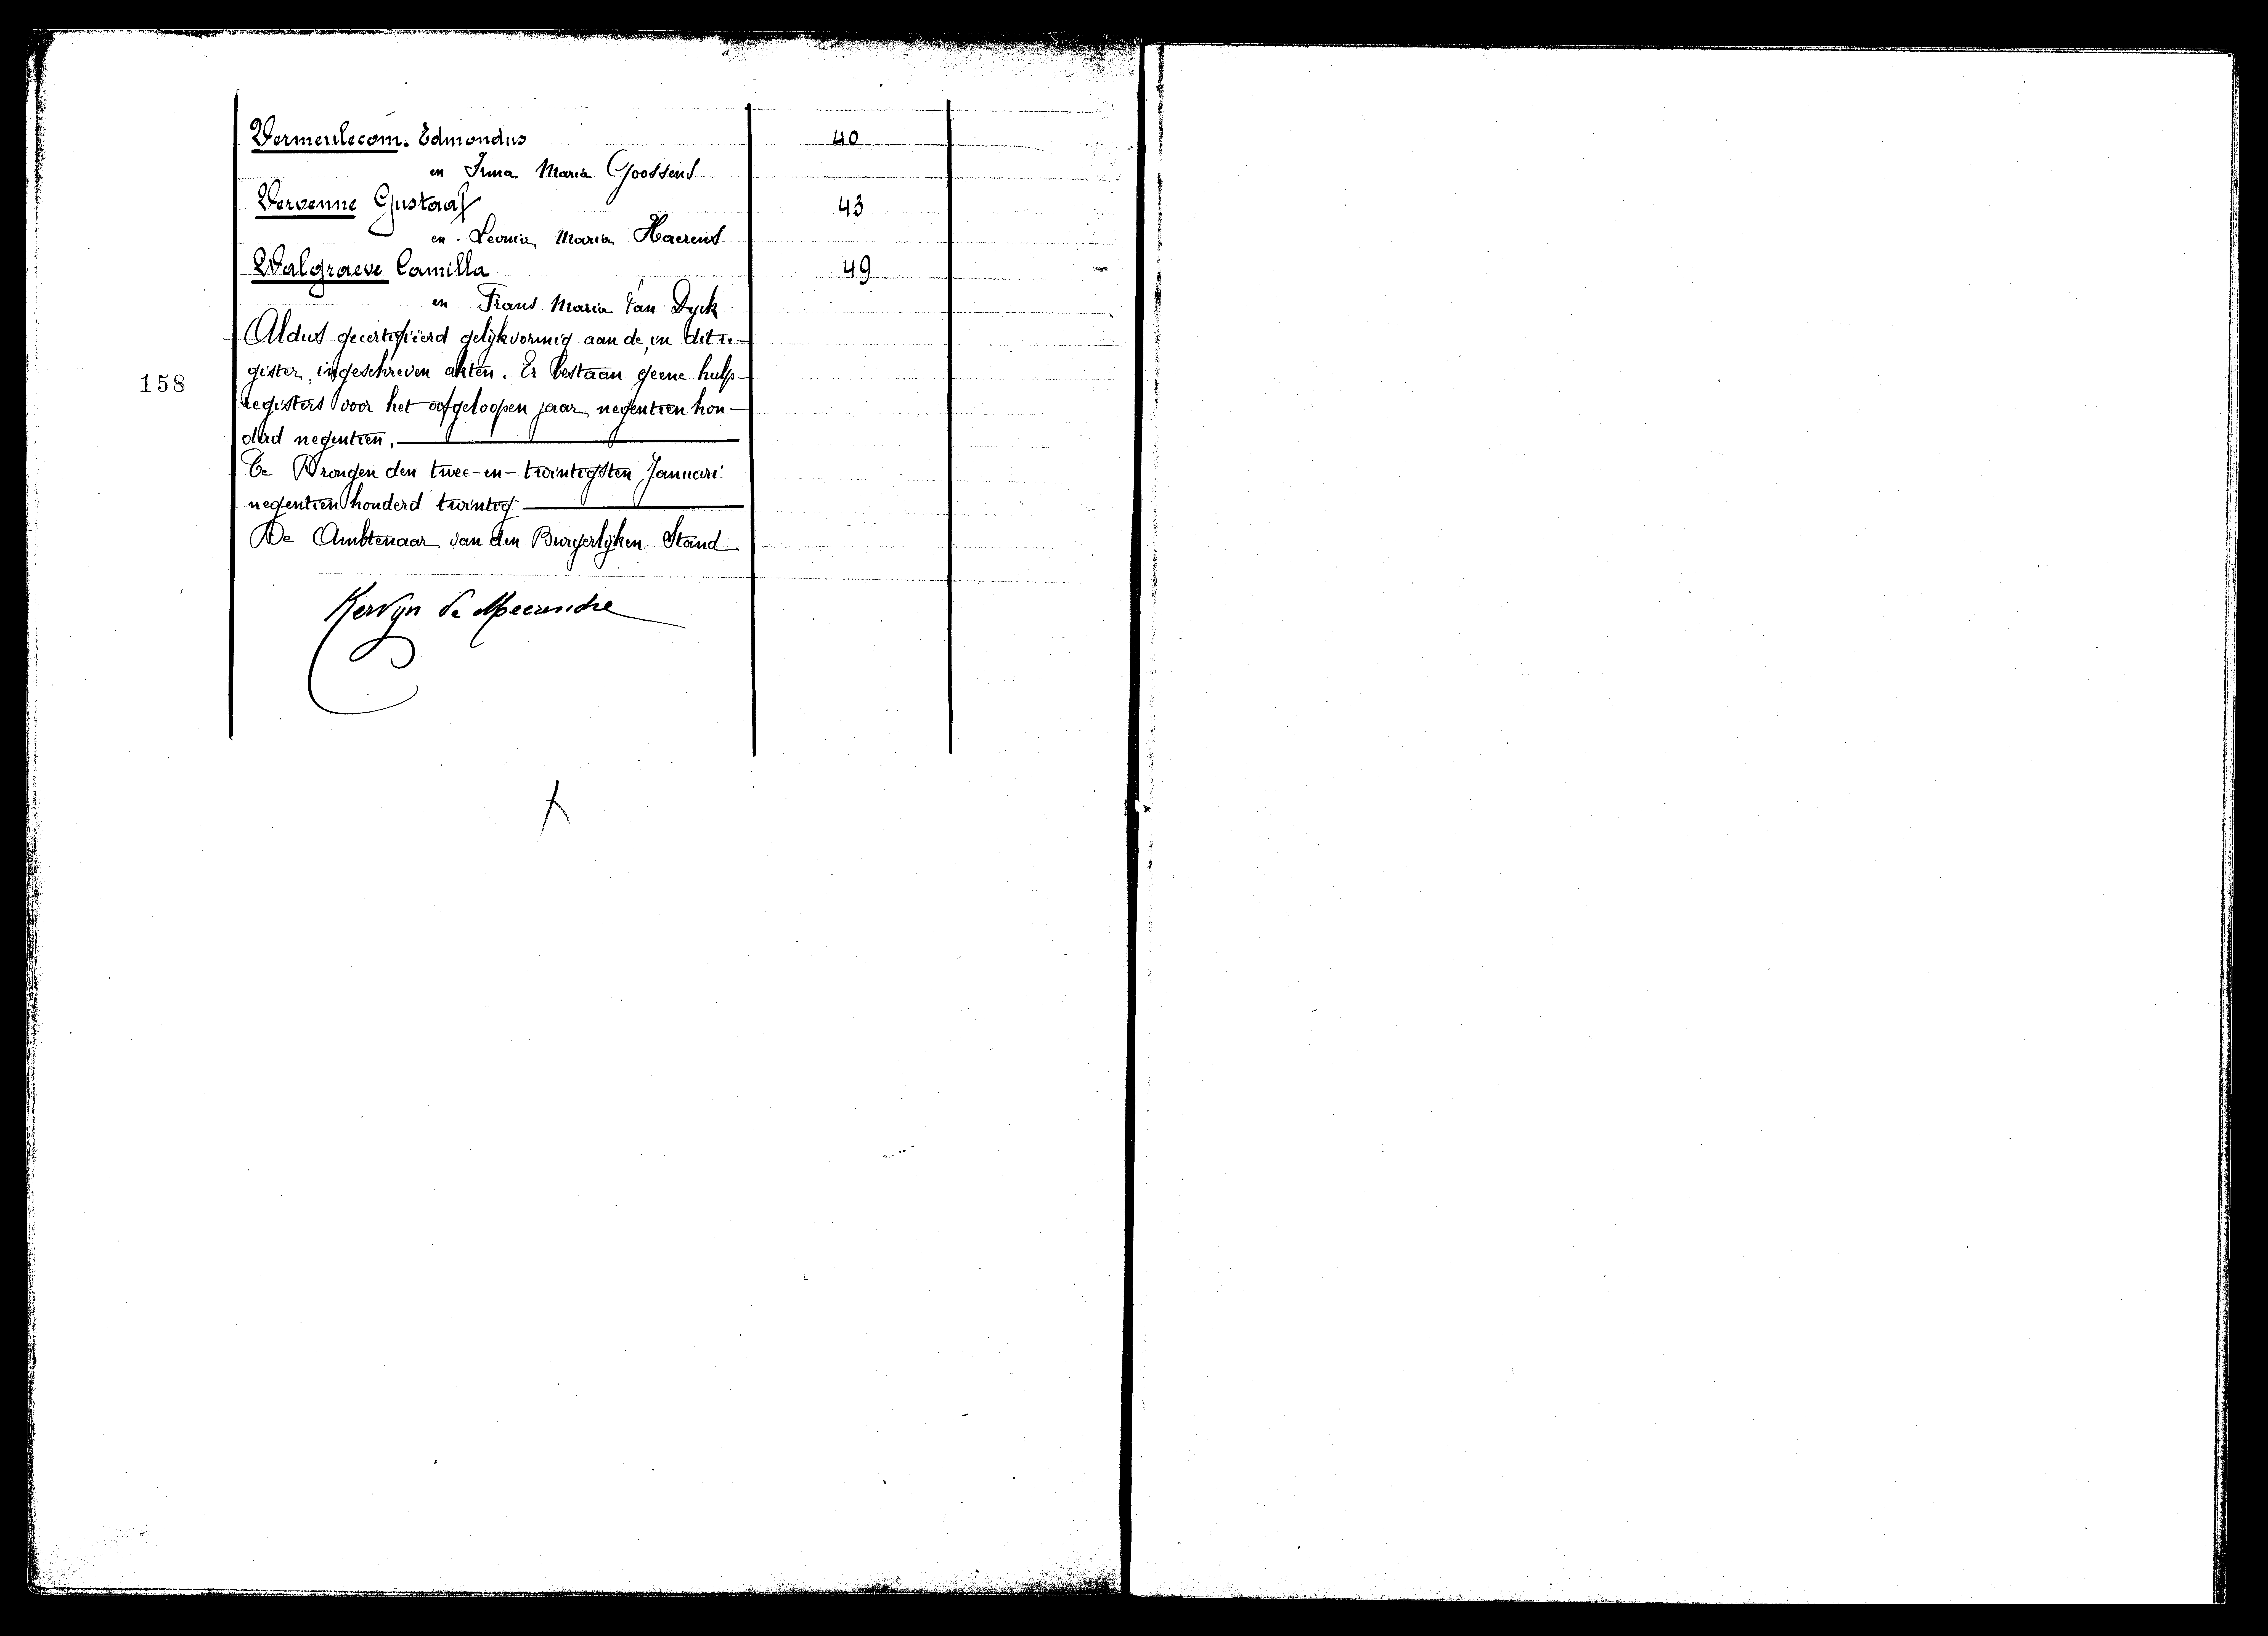 Vermeulecom. Edmondus 40
en Irma Maria Goossens
Vervenne Gustaaf 43
en Leonia Maria Haerens
Walgraeve Camilla 49
en Frans Maria Van Dyck
Aldus gecertifiëerd gelijkvormig aan de, in dit re-
gister, ingeschreven akten. Er bestaan geene hulp-
158
registers voor het afgeloopen jaar negentien hon-
derd negentien.
Te Drongen den twee-en-twintigsten Januari
negentien honderd twintig
De Ambtenaar van den Burgerlijken Stand
Kervyn de Meerendre